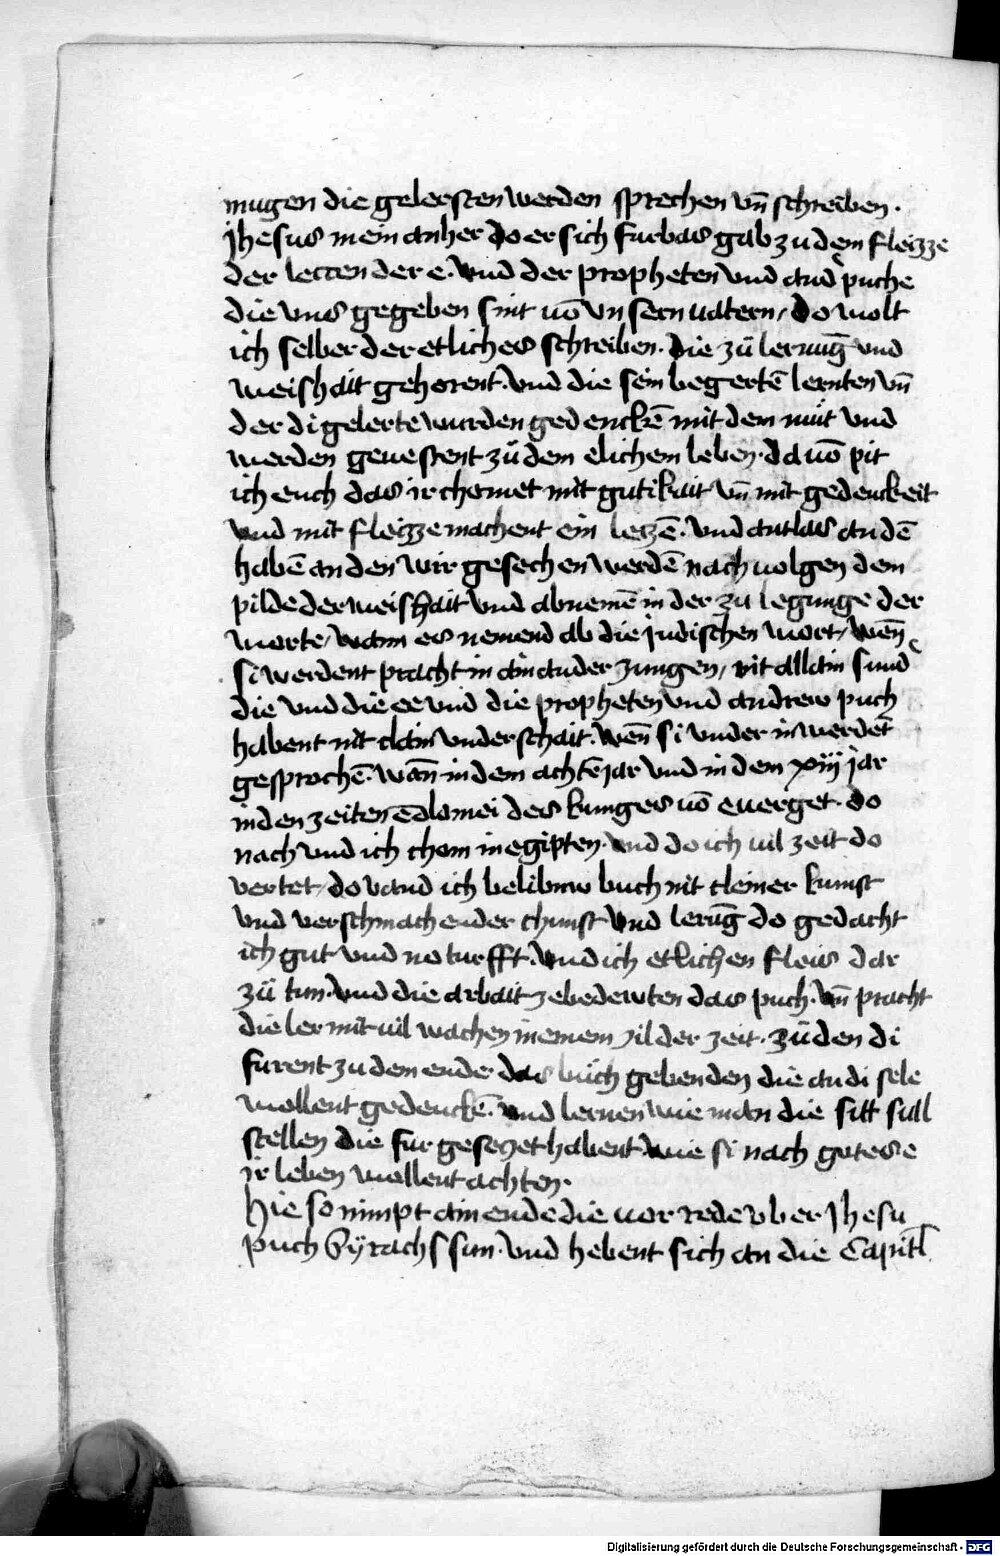 mugen die geleersten werden sprechen vn̄ schreiben.
Jhesus mein anher do er sich furbas gab zu dem fleizze
der leccen der e. vnd der propheten vnd and puche
die vns gegeben sint uō vnsern uatern / do wolt
ich selber der etliches schreiben. die zü lerunḡ vnd
weishait gehorent. vnd die sein begertē lernten vn̄
der di gelerte wurden gedenckē mit dem müt vnd
werden geuestent zü dem elichem leben. da uō pit
ich euch das ir chomet mit gutikait vn̄ mit gedenckeit
vnd mit fleizze machent ein lezzē. vnd antlas an dē
habē an den wir gesechen werdē nach uolgen dem
pilde der weishait vnd abnemē in der zu legunge der
worte / wann es nemend ab die judischen wort / wēn
si werdent pracht in ain ander zungen / nit allain sund
die vnd die ee vnd die propheten vnd andrew puch
habent nit clain vnderschait. wēn si vnder in werdēt
gesprochē. wān in dem achtē jar vnd in dem xxiij jar
in den zeiten des kunges uō euerget. do
nach vnd ich chom in egipten. vnd do ich uil zeit do
vertet / do vand ich belibnw buch nit cleiner kunst
vnd verschmachender chunst vnd lerūg do gedacht
ich gut vnd noturfft. vnd ich etlichen fleis dar
zü tun. vnd die arbait zebedewten das puch. vn̄ pracht
die ler mit uil wachen in einem zil der zeit. zü den di
furent zu dem ende das büch gebenden die an di sele
wellent gedenckē. vnd lernen wie man die sitt sull
stellen die fur gesezet habent wie si nach gotes e
ir leben wellent achten.
Hie so nimpt ain ende die uor rede vber Jhesu
puch Syrachs sun. vnd hebent sich an die Capitl
Digitalisierung gefördert durch die Deutsche Forschungsgemeinschaft - DFG